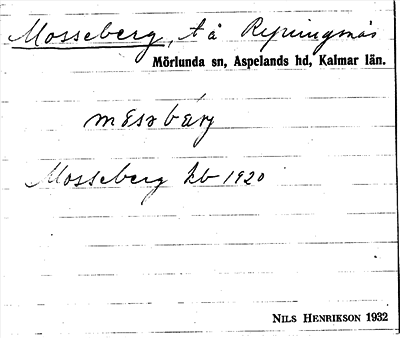 Mosseberg, t å Ryningsnäs
Mörlunda sn, Aspelands hd, Kalmar län.
Mosseberg kb 1920
NILS HENRIKSON 1932